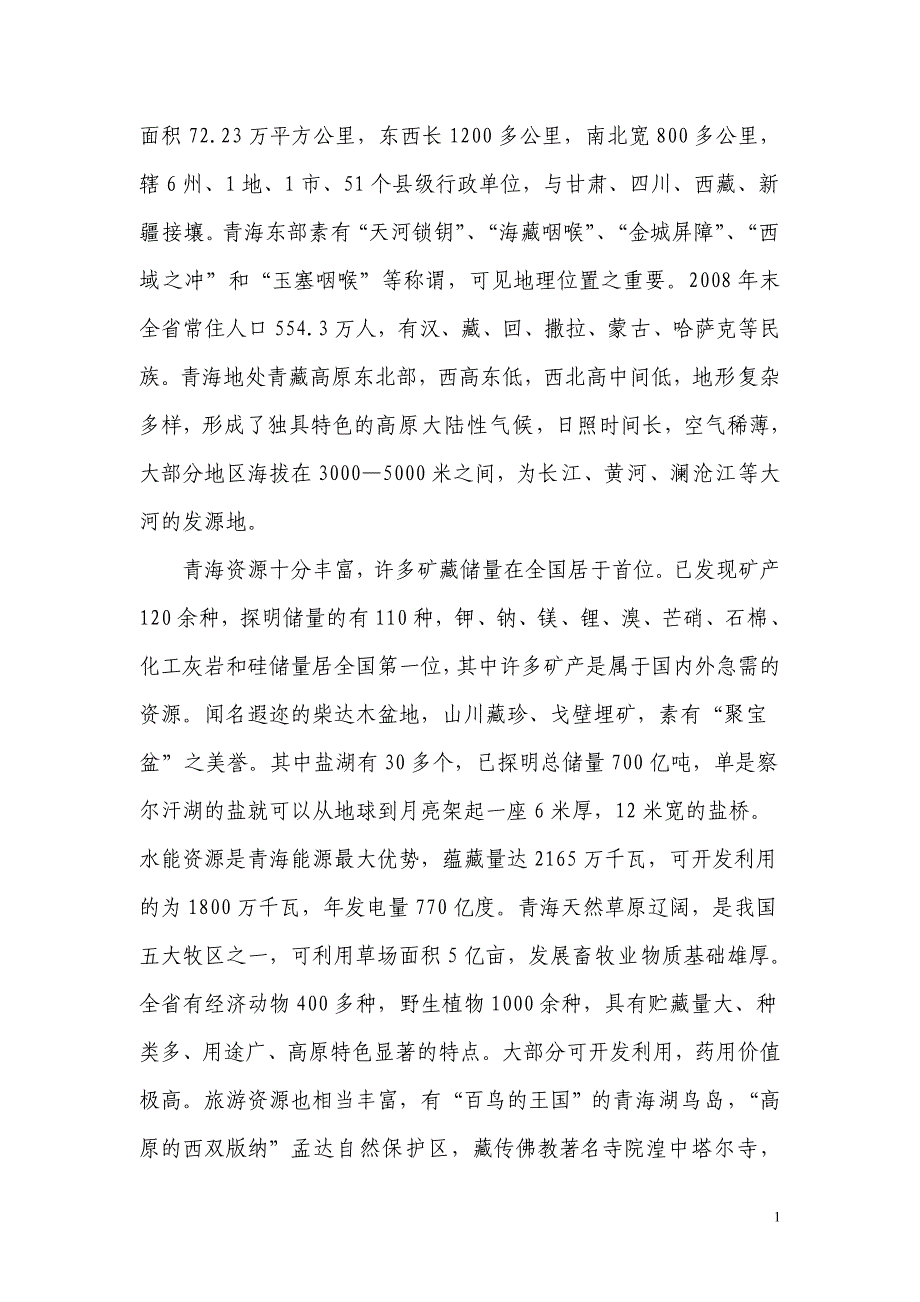 面积 72.23 万平方公里，东西长 1200 多公里，南北宽 800 多公里，
辖 6 州、1 地、1 市、51 个县级行政单位，与甘肃、四川、西藏、新
疆接壤。青海东部素有“天河锁钥”、“海藏咽喉”、“金城屏障”、“西
域之冲”和“玉塞咽喉”等称谓，可见地理位置之重要。2008 年末
全省常住人口 554.3 万人，有汉、藏、回、撒拉、蒙古、哈萨克等民
族。青海地处青藏高原东北部，西高东低，西北高中间低，地形复杂
多样，形成了独具特色的高原大陆性气候，日照时间长，空气稀薄，
大部分地区海拔在 3000—5000 米之间，为长江、黄河、澜沧江等大
河的发源地。
青海资源十分丰富，许多矿藏储量在全国居于首位。已发现矿产
120 余种，探明储量的有 110 种，钾、钠、镁、锂、溴、芒硝、石棉、
化工灰岩和硅储量居全国第一位，其中许多矿产是属于国内外急需的
资源。闻名遐迩的柴达木盆地，山川藏珍、戈壁埋矿，素有“聚宝
盆”之美誉。其中盐湖有 30 多个，已探明总储量 700 亿吨，单是察
尔汗湖的盐就可以从地球到月亮架起一座 6 米厚，12 米宽的盐桥。
水能资源是青海能源最大优势，蕴藏量达 2165 万千瓦，可开发利用
的为 1800 万千瓦，年发电量 770 亿度。青海天然草原辽阔，是我国
五大牧区之一，可利用草场面积 5 亿亩，发展畜牧业物质基础雄厚。
全省有经济动物 400 多种，野生植物 1000 余种，具有贮藏量大、种
类多、用途广、高原特色显著的特点。大部分可开发利用，药用价值
极高。旅游资源也相当丰富，有“百鸟的王国”的青海湖鸟岛，“高
原的西双版纳”孟达自然保护区，藏传佛教著名寺院湟中塔尔寺，
1